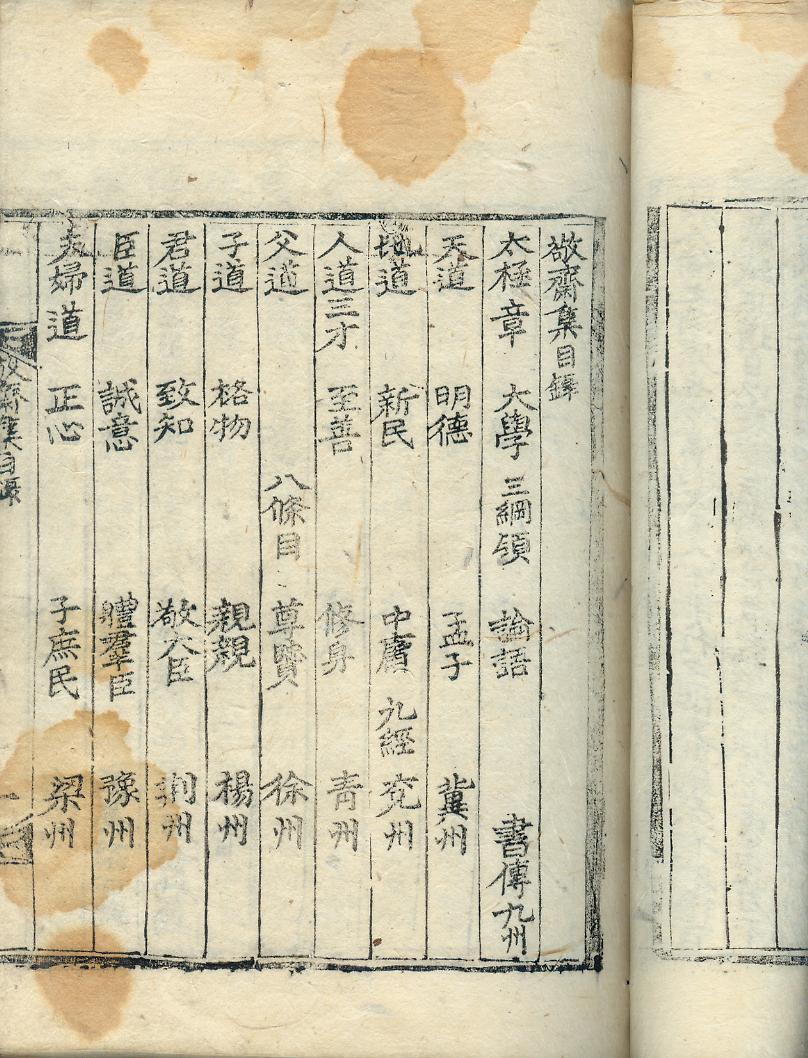 敬齋集目錄
太極章 大學 三綱領 論語 書傳九州
天道 明德 孟子 冀州
地道 新民 中庸 九經 兗州
人道三才 至善 修身 青州
父道 八條目 尊賢 徐州
子道 格物 親親 楊州
君道 致知 敬大臣 荆州
臣道 誠意 體羣臣 豫州
夫婦道 正心 子庶民 梁州
敬齋集目錄